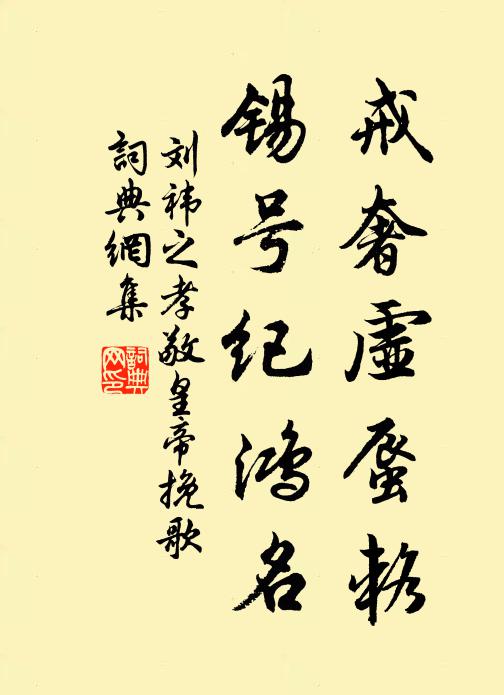 戒奢虚蜃辂
锡号纪鸿名
刘祎之孝敬皇帝挽歌
詞典網集
詞典网印